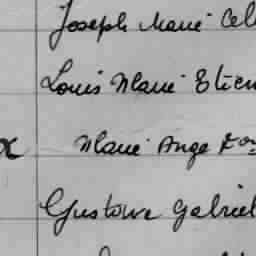 Joseph Marie Cel
Louis Marie Etien
x Marie Ange
Gustave Gabriel